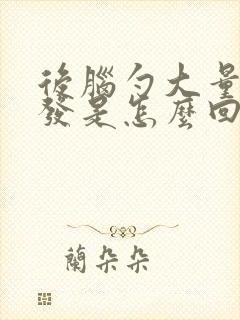 後腦勺大量
發是怎麼回
蘭朵朵